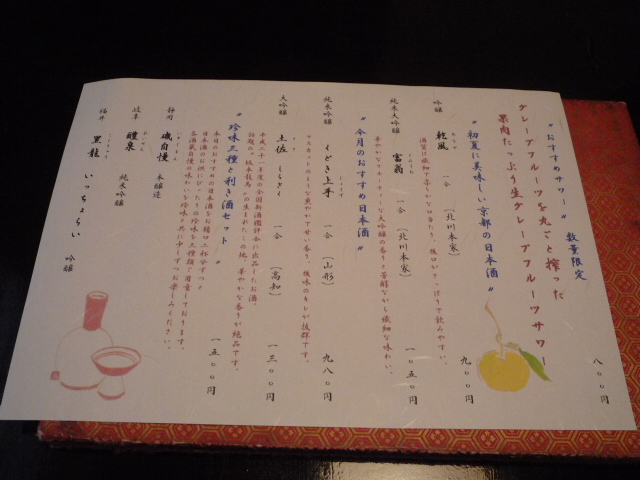 〝おすすめサワー〟 数量限定
グレープフルーツを丸ごと搾った
果肉たっぷり生グレープフルーツサワー 八〇〇円
〝初夏に美味しい京都の日本酒〟
吟醸 乾風 一合 (北川本家) 九〇〇円
酒質に繊細で柔らかな口当たり、後口がさっぱりで飲みやすい。
純米大吟醸 富翁 一合 (北川本家) 一〇五〇円
華やかなでフルーティーな大吟醸の香りと芳醇ながら繊細な味わい。
〝今月のおすすめ日本酒〟
純米吟醸 くどき上手 一合 (山形) 九八〇円
マスカットのような爽やかで甘い香り、後味のキレが抜群です。
大吟醸 土佐しらぎく 一合 (高知) 一三〇〇円
平成二十一年度の全国新酒鑑評会に出品したお酒。
話題の〝坂本龍馬〟の生まれたこの地、華やかな香りが絶品です。
〝珍味三種と利き酒セット〟 一五〇〇円
本日のおすすめの日本酒をお猪口三杯分ずつと
日本酒のお供にぴったりの珍味を三種類ご用意しております。
各酒蔵自慢の味わいを珍味と共に少しずつお楽しみください。
静岡 磯自慢 本醸造
岐阜 醴泉 純米吟醸
福井 黒龍 いっちょらい 吟醸